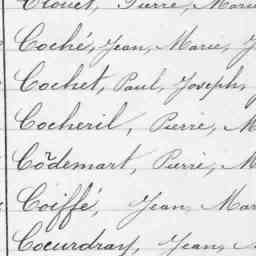 Clouet, Pierre, Marie
Coché, Jean, Marie, J
Cochet, Paul, Joseph,
Cocheril, Pierre, M
Codemart, Pierre, M
Coiffé, Jean, Mar
Coeurdray, Jean,